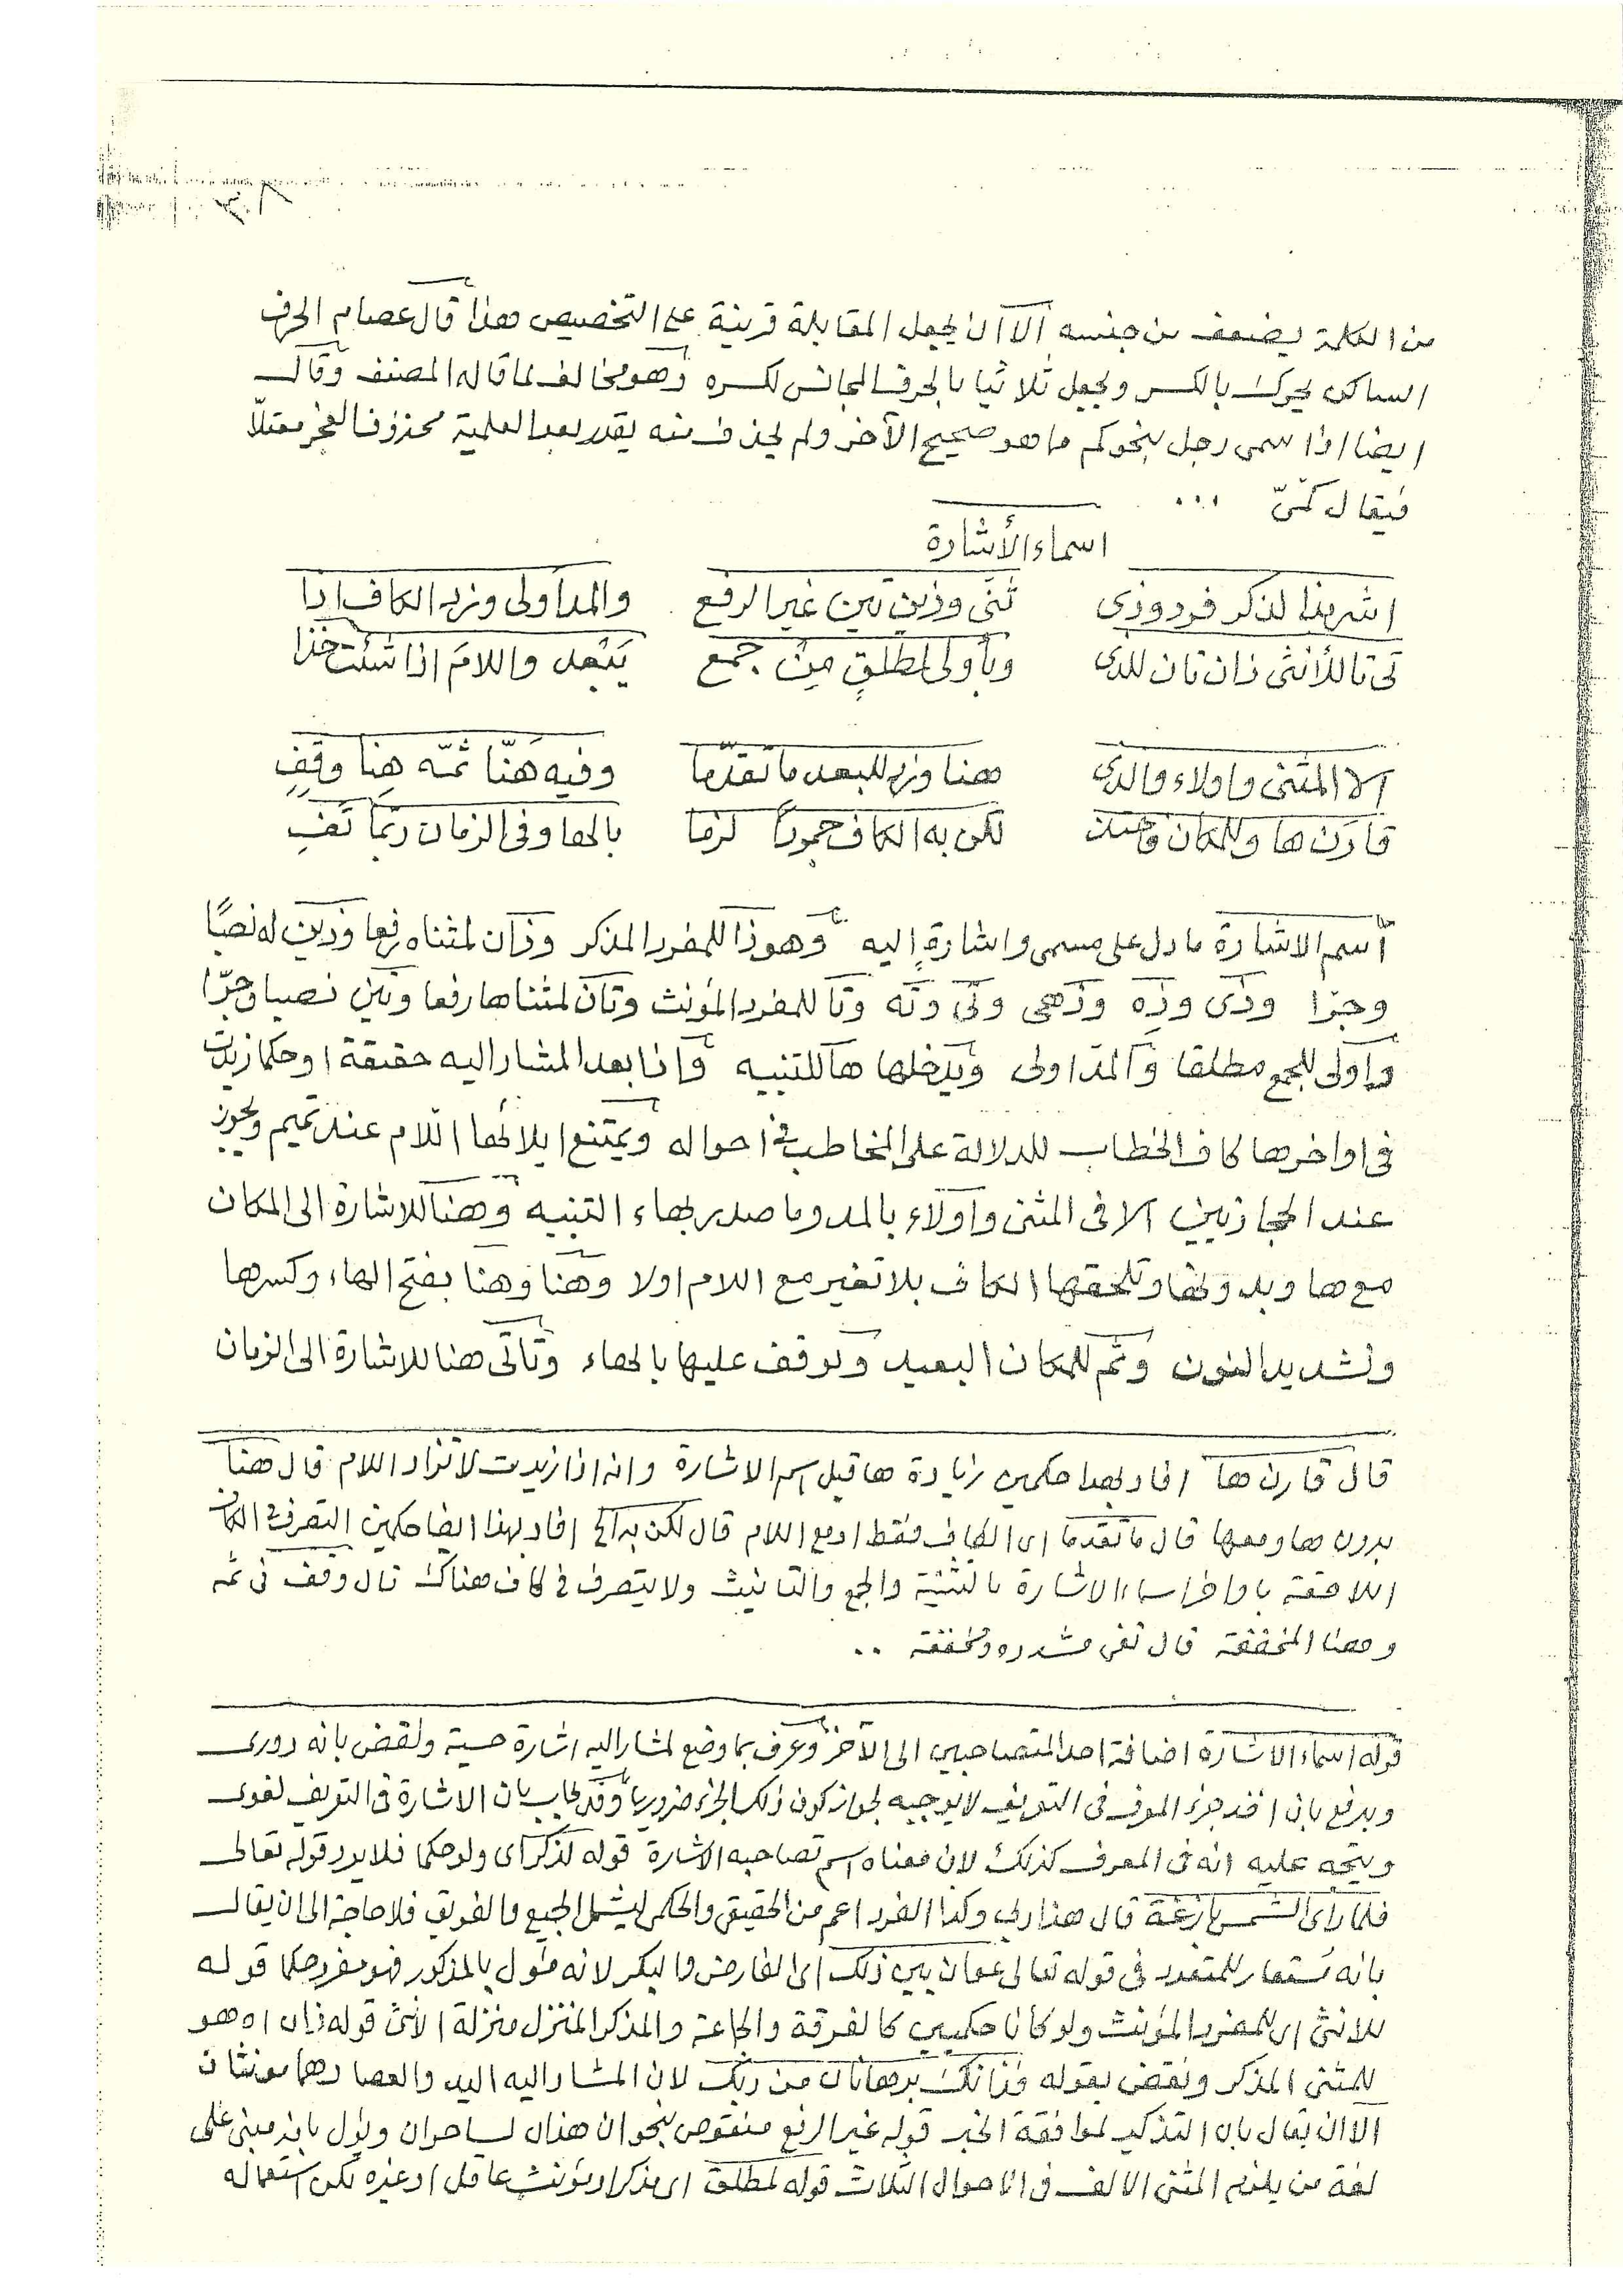 من الكلمة يضعف من جنسه الا ان يجعل المقابلة قرينة على التخصيص هذا قال عصام الحرف
الساكن يحرك بالكسر ويجعل ثلاثيا بالحرف المجانس لكسره وهو مخالف لما قاله المصنف وقال
ايضا اذا سمى رجل بنحو كم ما هو صحيح الآخر ولم يحذف منه يقدر بعد العلمية محذوف العجز معتلّا
فيقال كمّىّ ...
اسماء الأشارة
اشر بذا لذكر فرد وذى ثنّى وذين تين غير الرفع والمد أولى وزد الكاف اذا
تى تا للأنثى ذان تان للذى وبأولى لمطلقٍ مِنْ جمع يَبْعد واللامَ اذا شئت خذا
الا المثنى واولاء والذى هنا وزد للبعد ما تقدّما وفيه هَنّا ثمّه هِنا وقِفِ
قارن ها وللمكان لكن به الكاف جمودا لزما بالها وفى الزمان ربّما تَفى
أسم الاشارة ما دل على مسمى واشارةٍ إليه وهو ذا للمفرد المذكر وذان لمثناه رفعا وذين له نصبًا
وجرّا وذى وذِه وذهى وتى وته وتا للمفرد المؤنث وتان لمثناها رفعا وتين نصبا وجرّا
وأولى للجمع مطلقا والمد اولى ويدخلها ها للتنبيه واذا بعد المشار اليه حقيقة او حكما زيدت
فى اواخرها كاف الخطاب للدلالة على المخاطب فى احواله ويمتنع ايلائها اللام عند تميم ويجوز
عند الحجازيين الا فى المثنى واولاء بالمد وما صدر بهاء التنبيه وهنا للاشارة الى المكان
مع ها وبدونها وتلحقها الكاف بلا تغير مع اللام اولا وهَنّا وهِنا بفتح الهاء وكسرها
وتشديد النون وثَم للمكان البعيد وتوقف عليها بالهاء وتأتى هنا للاشارة الى الزمان
قال قارن ها افاد بهذا حكمين زيادة ها قبل اسم الاشارة وانه اذا زيدت لا تزاد اللام قال هنا
بدون ها ومعها قال ما تقدما اى الكاف فقط او مع اللام قال لكن به الخ افاد بهذا ايضا حكمين التصرف فى الكاف
اللاحقة باواخر اسماء الاشارة بالتثنية والجمع والتانيث ولا يتصرف فى كاف هناك قال وقف فى ثمه
وهنا المخففة قال تفى مشدده ومخففة ..
قوله اسماء الاشارة اضافة احد المتصاحبين الى الآخر وعرف بما وضع لمشار اليه اشارة حسية ونقض بانه دورى
ويدفع بان اخذ جزء المعرف فى التعريف لا يوجبه لجواز كون ذلك الجزء ضروريا وقد يجاب بان الاشارة فى التعريف لغوى
ويتجه عليه انه فى المعرف كذلك لان معناه اسم تصاحبه الاشارة قوله لذكر اى ولو حكما فلا يرد قوله تعالى
فلما رأى الشمس بازغة قال هذا ربى وكذا الفرد اعم من الحقيقى والحكمى ليشمل الجميع والفريق فلا حاجة الى ان يقال
بانه يستعار للمتعدد فى قوله تعالى عوان بين ذلك اى الفارض والبكر لانه مئول بالمذكور فهو مفرد حكما قوله
للانثى اى للمفرد المؤنث ولو كانا حكميين كالفرقة والجماعة والمذكر المنزل منزلة الأنثى قوله ذان اه هو
للمثنى المذكر ونقض بقوله فذانك برهانان من ربك لان المشار اليه اليد والعصا وهما مونثان
الا ان يقال بان التذكير لموافقة الخبر قوله غير الرفع منقوص بنحو ان هذان لساحران ويئول بانه مبنى على
لغة من يلزم المثنى الالف فى الاحوال الثلاث قوله لمطلق اى مذكر او مؤنث عاقل او غيره لكن استعماله